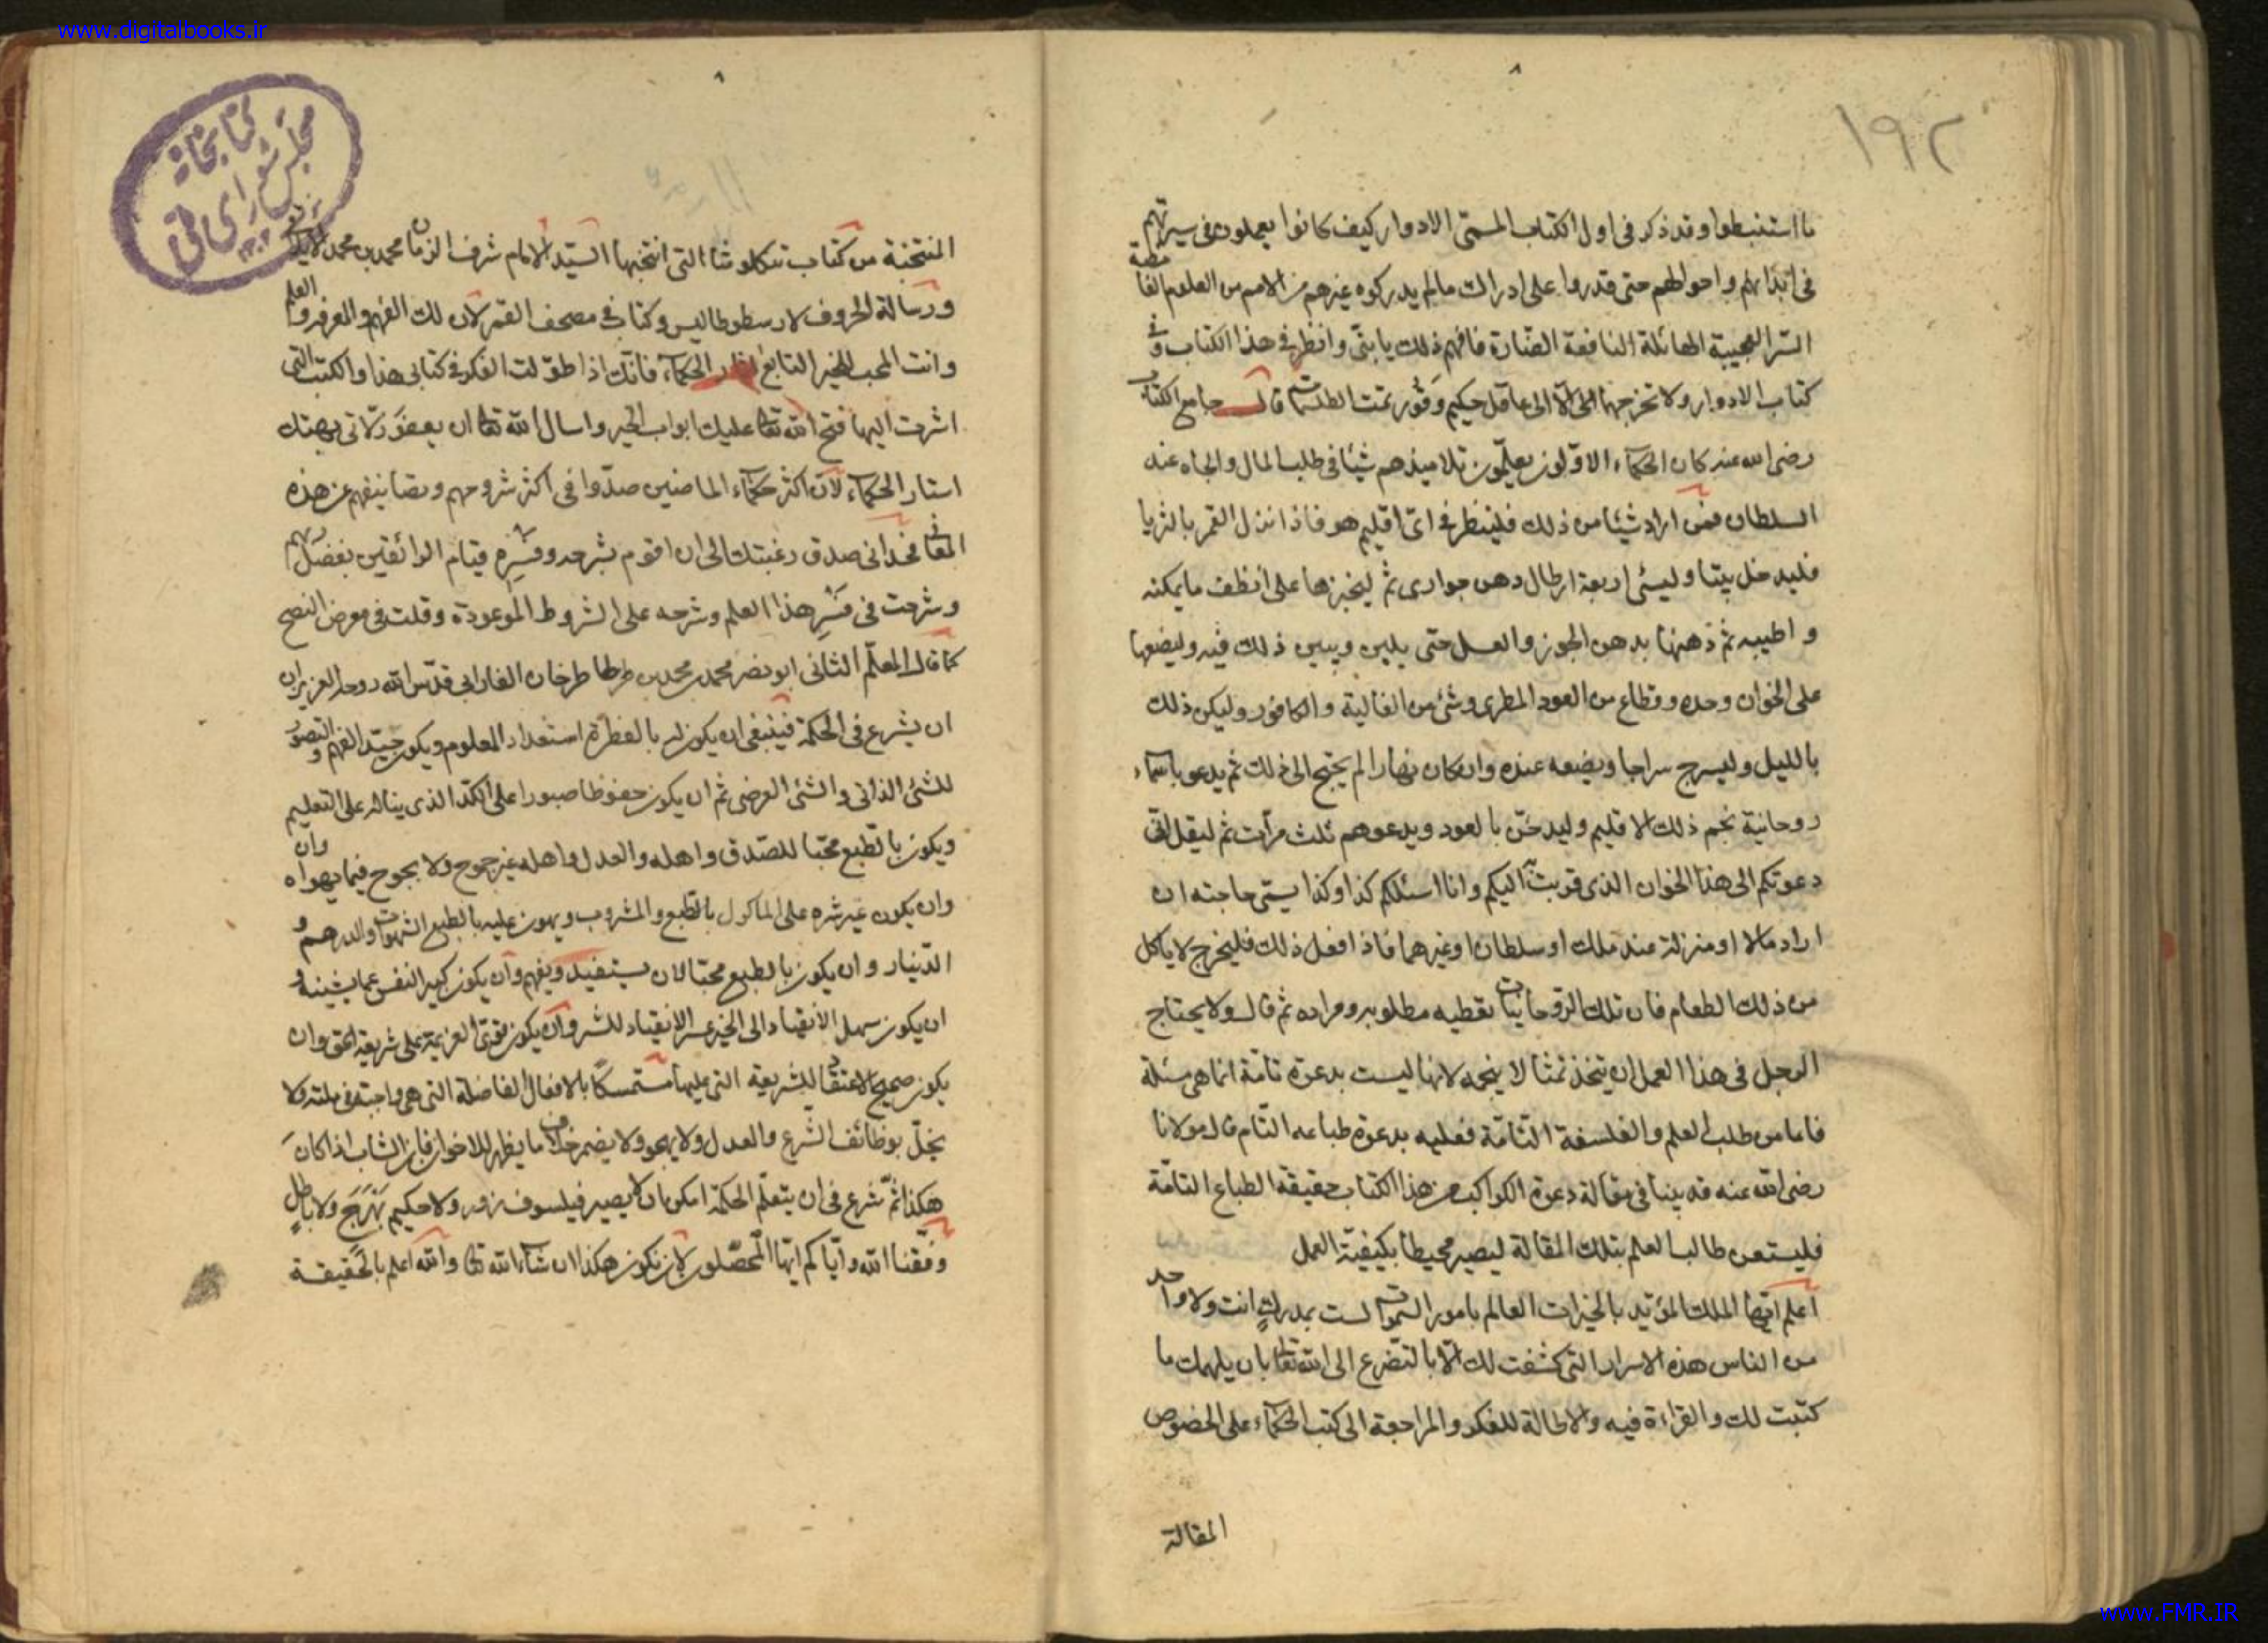 www.digitalbooks.ir
١٩٢
ما استنبطوا وقد ذكر فى اول الكتاب المسمّى الادوار كيف كانوا يعملون فى سيرتهم
واحوالهم حتى قدروا على ادراك مالم يدركوه غيرهم من الامم من العلوم
السّر العجيبة الهائلة النافعة الضّارة فافهم ذلك يا بنىّ وانظر فى هذا الكتاب وفى
كتاب الادوار ولا تخرجهما الّا الى عاقل حكيم وقور تمت الطلسمات قال جامع الكتاب
رضى الله عنه كان الحكماء الاوّلون يعلّمون تلاميذهم شيئا فى طلب المال والجاه عند
السلطان فمن اراد شيئا من ذلك فلينظر فى اىّ اقليم هو فاذا نزل القمر بالثريا
فليدخل بيتا اربعة ارطال جوارى ثم ليخبزها على انظف ما يمكنه
واطيبه ثم بدهن الجوز والعسل حتى يلين ويبين ذلك فيه وليضعها
على الخوان وحده وقطاع من العود المطرى وشئ من الغالية والكافور وليكن ذلك
بالليل وليسرج سراجا ويضعه عنده وان كان نهارا لم يحتج الى ذلك ثم يدعو باسماء
روحانية نجم ذلك الاقليم وليدخّن بالعود ويدعوهم ثلث مرّات ثم ليقل انّى
دعوتكم الى هذا الخوان الذى قربت اليكم وانا اسئلكم كذا وكذا يسمّى حاجته ان
اراد مالا او منزلة عند ملك او سلطان او غيرهما فاذا فعل ذلك فليخرج لا ياكل
من ذلك الطعام فان تلك الروحانيّات تعطيه مطلوبه ومراده ثم قال ولا يحتاج
الرجل فى هذا العمل ان يتخذ لانها ليست بدعوة تامّة انما هى مسئلة
فاما من طلب العلم والفلسفة التّامّة فعليه بدعوة طباعه التّام قال مولانا
رضى الله عنه قد بينا فى مقالة دعوة الكواكب من هذا الكتاب حقيقة الطباع التامّة
فليستعن طالب العلم بتلك المقالة ليصير محيطا بكيفيّة العمل
اعلم ايّها الملك المؤيّد بالخيرات العالم بامور السموات لست بمدرك انت ولا واحد
من الناس هذه الاسرار التى كشفت لك الّا بالتضرع الى الله تعا بان يلهمك ما
كتبت لك والقراءة فيه والاطالة للفكر والمراجعة الى كتب الحكماء على الخصوص
المقالة
كتابخانه
مجلس شورای ملی
المنتخبة من كتاب تنكلوشا التى انتخبها السيّد الامام شرف الزمان محمد بن محمد
ورسالة الحروف لارسطوطاليس وكتابى فى مصحف القمر لان لك الفهم والمعرفة والعلم
وانت المحب للخير التابع الحكماء فانّك اذا طوّلت الفكر فى كتابى هذا والكتب التى
اشرت اليها فتح الله تعا عليك ابواب الخير واسال الله تعا ان يعفو زلّاتى بهتك
استار الحكماء لانّ اكثر حكماء الماضين صدّوا فى اكثر شروحهم وتصانيفهم عن هذه
المعانى صدق رغبتك الى ان اقوم بشرحه وفسّره قيام الواثقين بفضلهم
وشرعت فى فسر هذا العلم وشرحه على الشروط الموعودة وقلت فى معرض النصح
كما قال المعلّم الثانى ابو نصر محمد بن محمد بن طرخان الفارابى قدّس الله روحه العزيز ان
ان يشرع فى الحكمة فينبغى ان يكون له بالفطرة استعداد المعلوم ويكون جيّد الفهم والتصوّر
للشئ الذاتى والشئ العرضى ثم ان يكون حفوظا صبورا على الكدّ الذى يناله على التعليم
ويكون بالطبع محبّا للصّدق واهله والعدل واهله غير جموح ولا لجوج فيما يهواه وان
وان يكون غير شره على الماكول بالطبع والمشروب ويهون عليه بالطبع الشهوات والدرهم و
الدّينار وان يكون بالطبع محبّا لان يستفيد ويفهم وان يكون كبير النفس عما يشينه و
ان يكون سهل الانقياد الى الخير عسر الانقياد للشر وان يكون قوىّ العزيمة على شريعة الحق وان
يكون صحيح الاعتقاد للشريعة التى عليها متمسكا بالافعال الفاضلة التى هى واجبة فى ملته ولا
يخلّ بوظائف الشّرع والعدل ولا يهجو ولا يضمر خلاف ما يظهر للاخوان فان الشاب اذا كان
هكذا ثمّ شرع فى ان يتعلّم الحكمة امكن ان لا يصير فيلسوف زور ولا حكيم بهرج ولا باطل
وفّقنا الله وايّاكم ايّها المحصّلون لان نكون هكذا ان شاء الله تعا والله اعلم بالحقيقة
www.FMR.IR